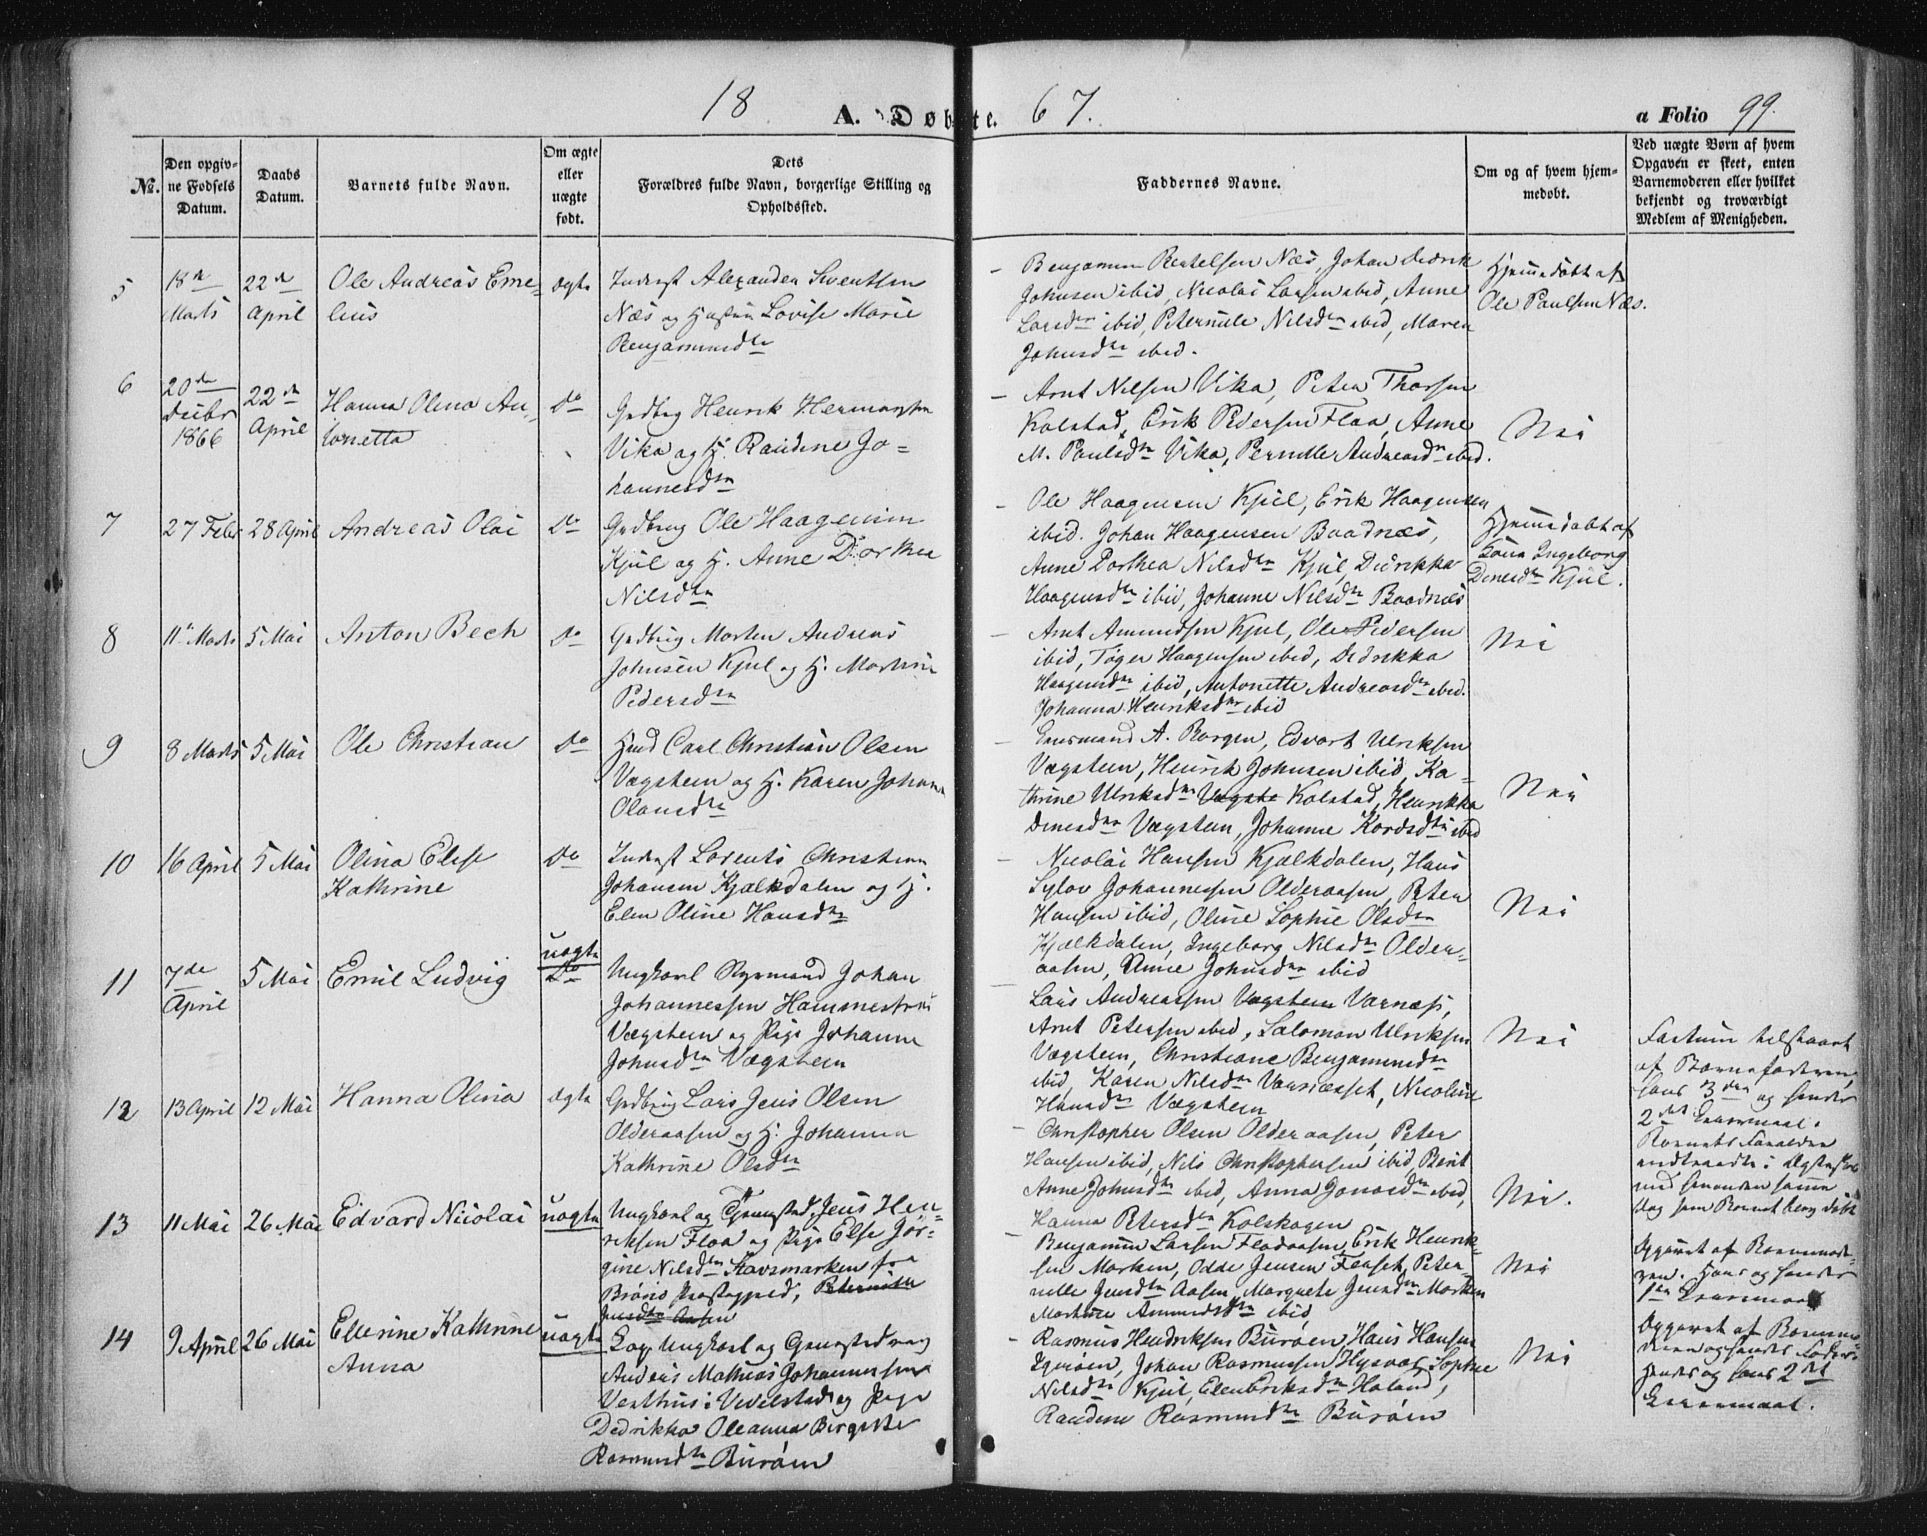 18 A. Døbte. 67. a Folio 99.
No.
Den opgiv-
ne Fødsels
Datum.
Daabs
Datum.
Barnets fulde Navn.
Om ægte
eller
uægte
født.
Dets
Forældres fulde Navn, borgerlige Stilling og
Opholdssted.
Faddernes Navne.
Om og af hvem hjem-
medøbt.
Ved uægte Børn af hvem
Opgaven er skeet, enten
Barnemoderen eller hvilket
bekjendt og troværdigt
Medlem af Menigheden.
5
18de
Marts
22de
April
Ole Andreas Eme-
lius
ægte
Inderst Alexander Sventsen
Næs og Hustru Lovise Marie
Benjaminsdtr
Benjamin Bertelsen Næs, Johan Didrik
Johnsen ibid, Nicolai Larsen ibid, Anne
Larsdtr ibid, Peternille Nilsdtr ibid, Maren
Johnsdtr ibid.
Hjemmedøbt af
Ole Paulsen Næs.
6
20de
Decbr
1866
22de
April
Hanna Olina An-
tonetta
Do
Grdbrg Henrik Hermansen
Vika og H. Raudine Jo-
hannesdtr
Arnt Nilsen Vika, Peter Thorsen
Kolstad, Erik Pedersen Flaa, Anne
M. Paulsdtr Vika, Pernille Andreasdtr ibid.
Nei
7
27 Febr
28 April
Andreas Olai
Do
Grdbrug Ole Haagensen
Kjul og H. Anne Dorthea
Nilsdtr
Ole Haagensen Kjul, Erik Haagensen
ibid. Johan Haagensen Baadnæs,
Anne Dorthea Nilsdtr Kjul, Didrikka
Haagensdtr ibid, Johanne Nilsdtr Baadnæs
Hjemmedøbt af
Kone Ingeborg
Dinesdtr Kjul.
8
11te Marts
5 Mai
Anton Bech
Do
Grdbrug Morten Andreas
Johnsen Kjul og H. Martine
Pedersdtr
Arnt Amundsen Kjul, Ole Pedersen
ibid, Tøger Haagensen ibid, Didrikka
Haagensdtr ibid, Antonette Andreasdtr ibid.
Johanna Henriksdtr ibid
Nei
9
8 Marts
5 Mai
Ole Christian
Do
Hmd Carl Christian Olsen
Vægsteen og H. Karen Johanna
Olausdtr
Enesmand A. Borgen, Edvart Ulriksen
Vægsteen, Henrik Johnsen ibid, Ka-
thrine Ulriksdtr Vægste Kolstad, Henrikka
Dinesdtr Vægsteen, Johanne Kordsdtr ibid
Nei
10
16 April
5 Mai
Olina Elise
Kathrine
Do
Inderst Lorents Christian
Johansen Kjælkdalen og H.
Elen Oline Hansdtr
Nicolai Hansen Kjælkdalen, Hans
Sylov Johannessen Olderaasen, Peter
Hansen ibid, Oline Sophie Olsdtr
Kjælkdalen, Ingeborg Nilsdtr Older-
aasen, Anne Johnsdtr ibid
Nei
11
7de
April
5 Mai
Emil Ludvig
uægte
Do
Ungkarl Johan
Johannessen
Vægsteen og Pige Johanna
Johnsdtr Vægsteen
Lars Andreassen Vægsteen Varnæs,
Arnt Petersen ibid, Salomon Ulriksen
Vægsteen, Christiane Benjaminsdtr
ibid, Karen Nilsdtr Varnæsset, Nicoline
Hansdtr Vægsteen
Nei
Factum tilstaaet
af Barnefaderen,
hans 3die og hendes
2det Leiermaal.
Barnets Forældre
indtraadte i Ægteskab
med hinanden samme
Dag som Barnet blev døbt
12
13 April
12 Mai
Hanna Olina
ægte
Grdbrug Lars Jens Olsen
Olderaasen og H. Johanna
Kathrine Olsdtr
Christopher Olsen Olderaasen, Peter
Hansen ibid, Nils Christophersen ibid, Berit
Anne Johnsdtr ibid, Anna Jonasdtr ibid,
Hanna Petersdtr Kolskogen
Nei.
13
11 Mai
26 Mai
Edvard Nicolai
uægte
Ungkarl og Jens Hen-
riksen Flaa og Pige Else Jør-
gine Nilsdtr Havsmarken fra
Brønø Præstegjeld, Peternille
Jensdtr Aasen
Benjamin Larsen Flodaasen, Erik Henrik-
sen Marken, Odde Jensen Flaaset, Peter-
nille Jensdtr Aasen, Margrete Jensdtr Marken
Martine Amundsdtr ibid
Nei
Opgivet af Barnemod-
eren. Hans og hendes
1ste Leiermaal
14
9 April
26 Mai
Ellerine Kathrine
Anna
uægte
Ungkarl og
Anders Mathias Johannessen
Vesthus i Vevelstad og Pige
Dedrikka Oleanna Birgitte
Rasmusdtr Burøen
Rasmus Hendriksen Burøen, Hans Hansen
Johan Rasmussen Hysvær, Sophie
Nilsdtr Kjul, Elen Eriksdtr Haland,
Raudine Rasmusdtr Burøen
Nei
Opgivet af Barnemo-
deren og hendes Fader.
Hendes og hans 2det
Leiermaal.